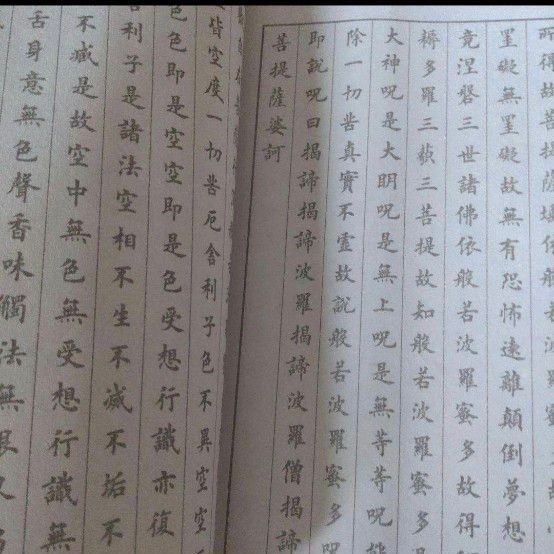 所得故菩提薩埵依般若波羅蜜多
罣礙無罣礙故無有恐怖遠離顛倒夢想
竟涅槃三世諸佛依般若波羅蜜多故得
耨多羅三藐三菩提故知般若波羅蜜多
大神呪是大明呪是無上呪是無等等呪能
除一切苦真實不虛故說般若波羅蜜多呪
即說呪曰揭諦揭諦波羅揭諦波羅僧揭諦
菩提薩婆訶
皆空度一切苦厄舍利子色不異空空
色色即是空空即是色受想行識亦復
舍利子是諸法空相不生不滅不垢不
不減是故空中無色無受想行識無
舌身意無色聲香味觸法無眼